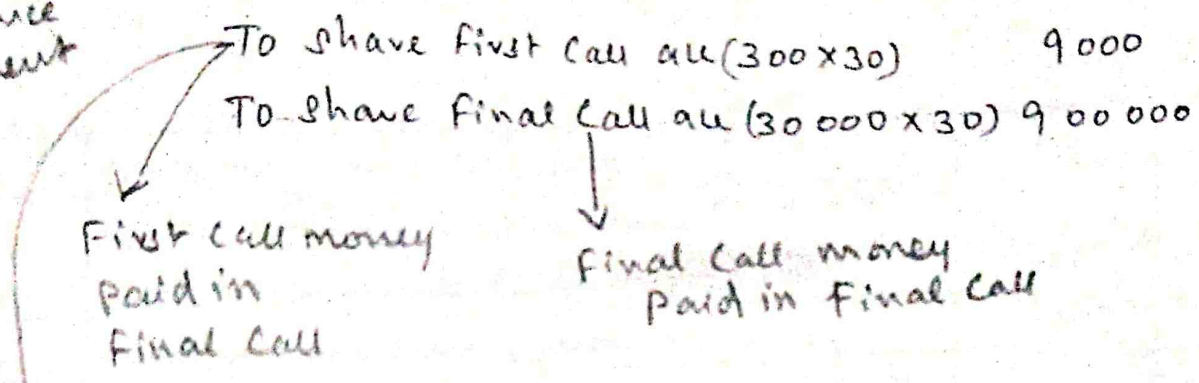 To share first Call a/c (300 x 30) 9000
To share final Call a/c (30000 x 30) 900000
First Call money
paid in
final Call
final Call money
paid in final Call